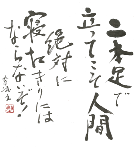 二本足で
立ってこそ人間
絶対に
寝たきりには
ならないぞ!